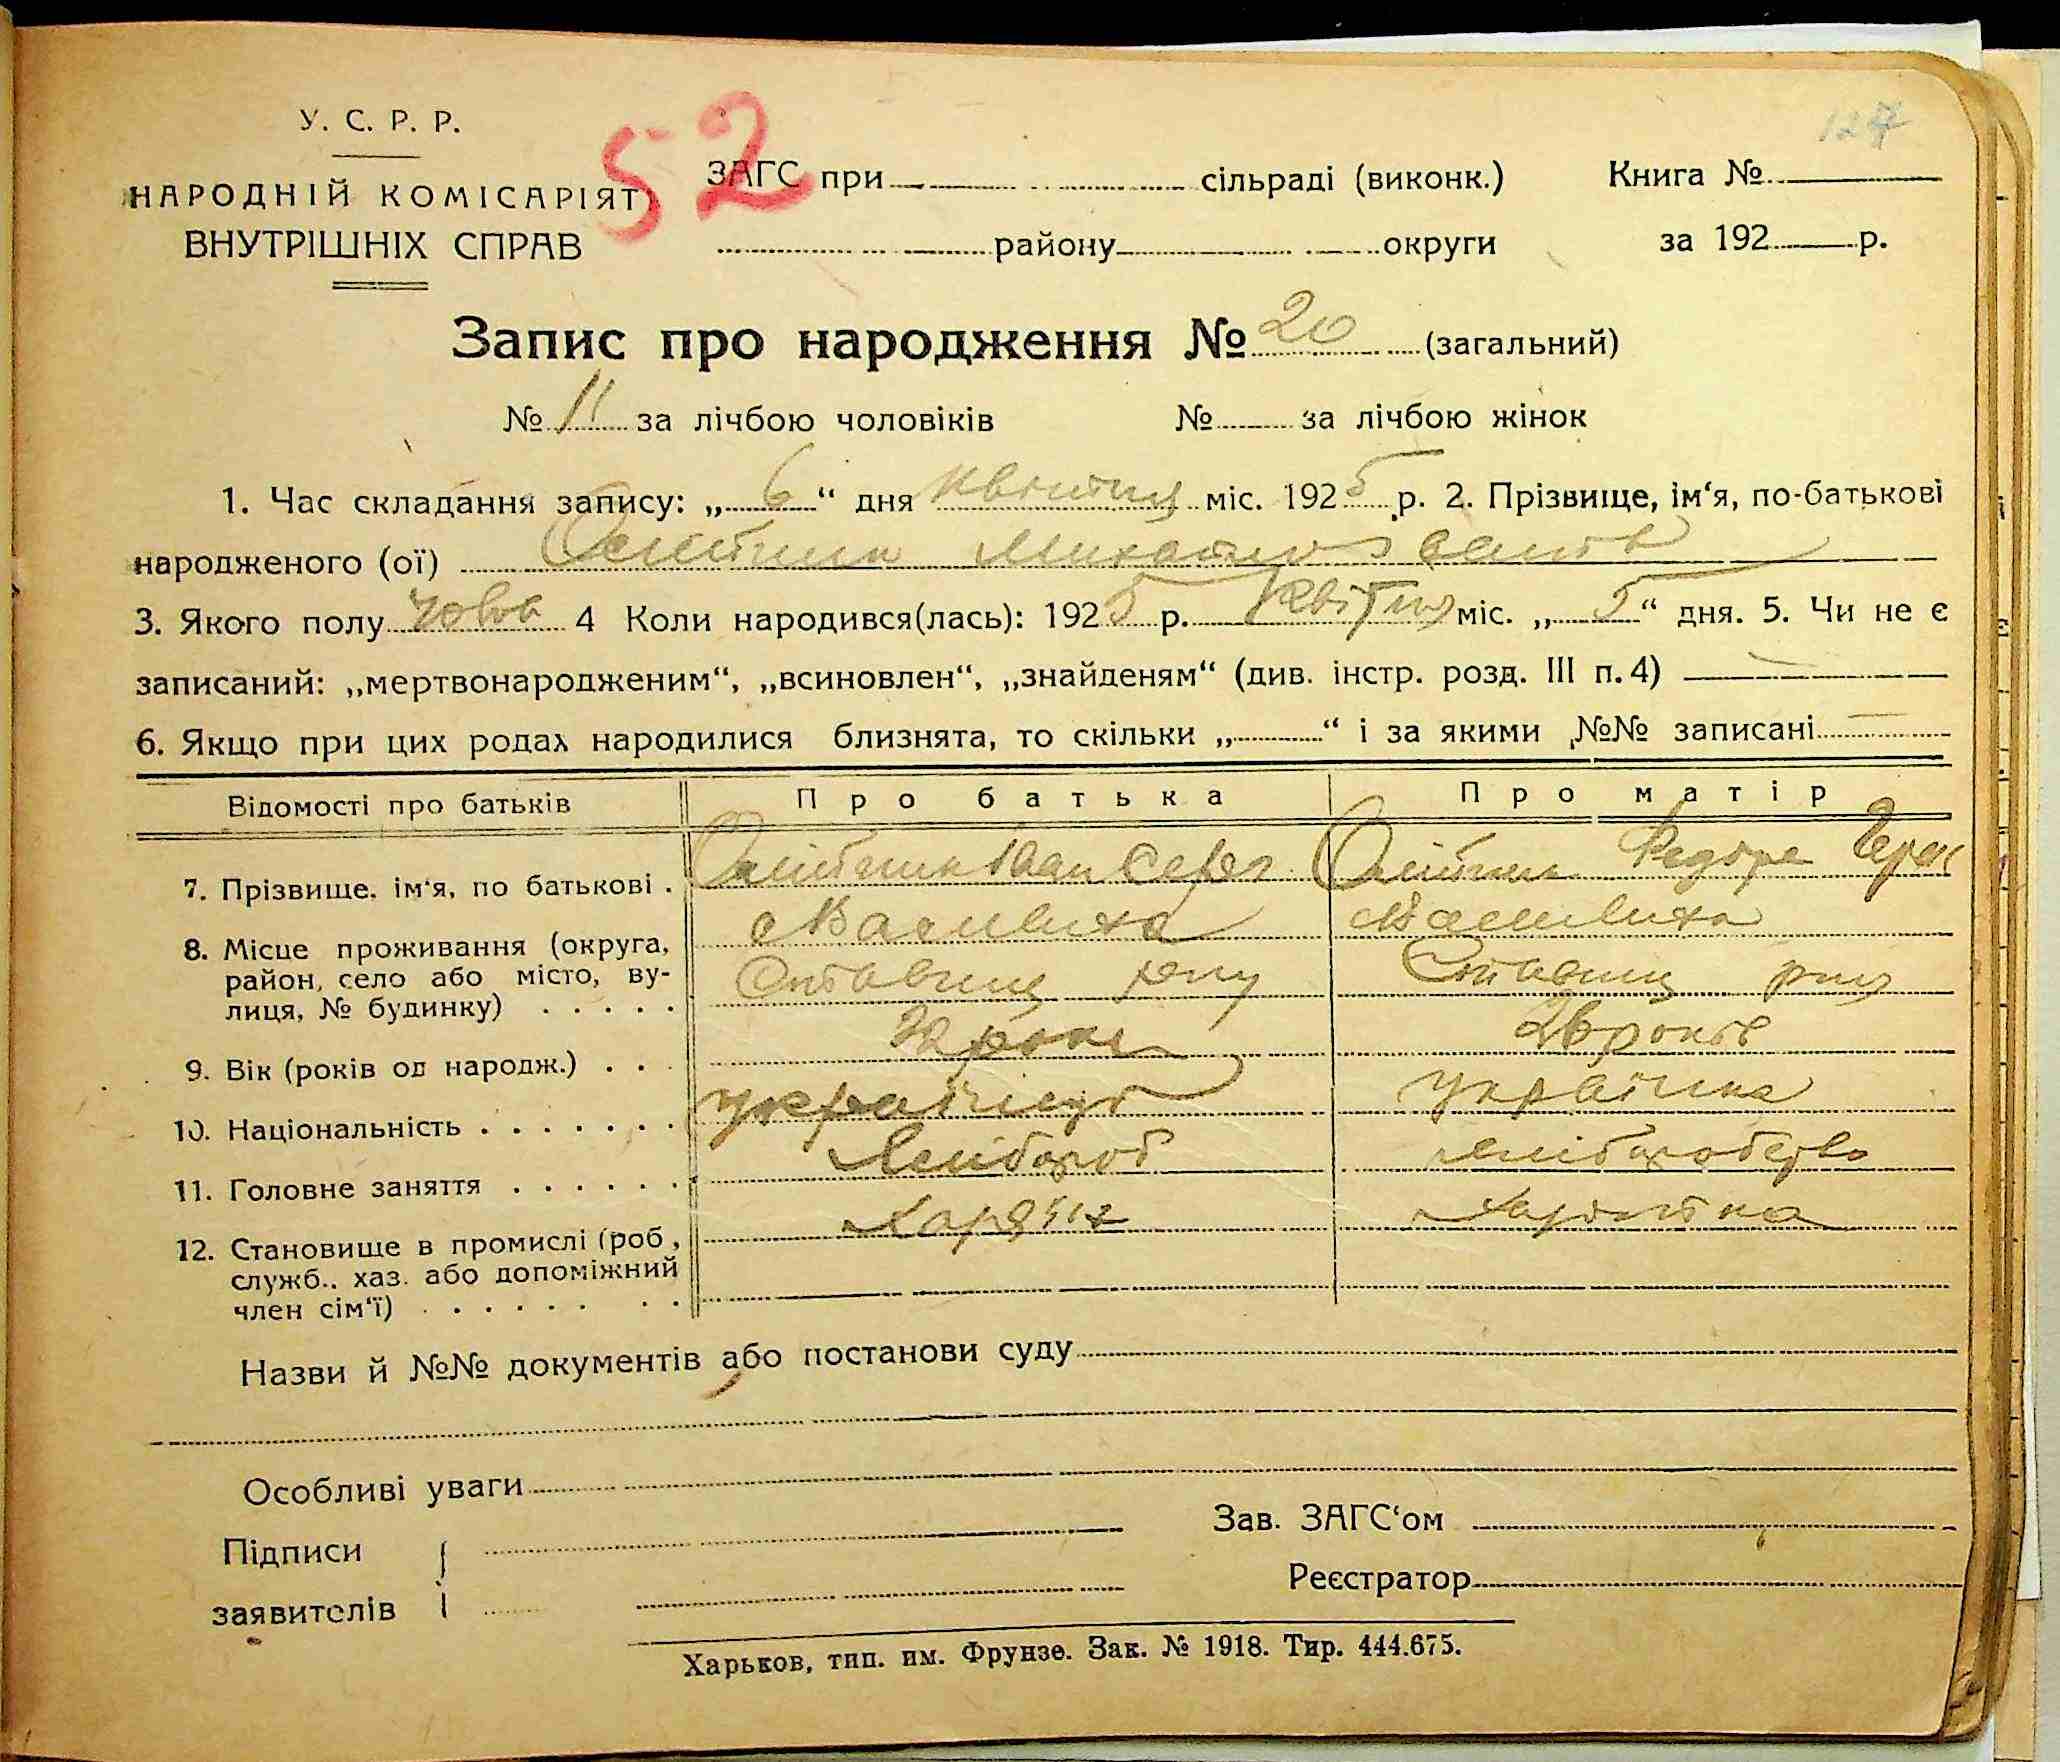 127
У. С. Р. Р.
52
НАРОДНІЙ КОМІСАРІЯТ
ВНУТРІШНІХ СПРАВ
ЗАГС при сільраді (виконк.)
району округи
Книга №
за 192 р.
Запис про народження № 20 (загальний)
№ 11 за лічбою чоловіків № за лічбою жінок
1. Час складання запису: „ 6 “ дня квітня міс. 1925 р. 2. Прізвище, ім‘я, по-батькові
народженого (ої)
3. Якого полу чолов 4 Коли народився(лась): 1925 р. Квітня міс. „ 5 “ дня. 5. Чи не є
записаний: „мертвонародженим“, „всиновлен“, „знайденям“ (див. інстр. розд. III п. 4)
6. Якщо при цих родах народилися близнята, то скільки „ “ і за якими №№ записані
Відомості про батьків Про батька Про матір
7. Прізвище, ім‘я, по батькові . Іван
8. Місце проживання (округа,
район, село або місто, ву-
лиця, № будинку) . . . . .
9. Вік (років од народж.) . . . роки 26 років
10. Національність . . . . . . . українець українка
11. Головне заняття . . . . . . хлібороб хліборобство
12. Становище в промислі (роб,
служб., хаз. або допоміжний
член сім‘ї) . . . . . . . .
Назви й №№ документів або постанови суду
Особливі уваги
Підписи
заявителів
Зав. ЗАГС‘ом
Реєстратор
Харьков, тип. им. Фрунзе. Зак. № 1918. Тир. 444.675.